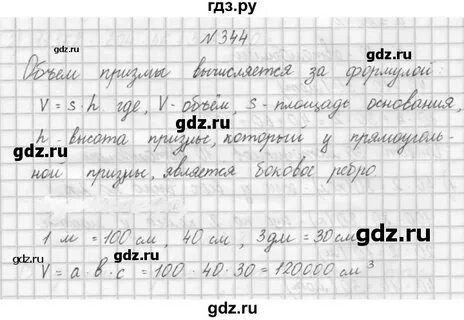 гдз.ру
№344
gdz.ru gdz.ru
Объем призмы вычисляется за формулой:
V = s · h где, V - объём, s - площадь основания,
gdz.ru
h - высота призмы, который у прямоуголь-
gdz.ru gdz.ru
ной призмы, является боковое ребро
gdz.ru
1 м = 100 см, 40 см, 3 дм = 30 см
gdz.ru gdz.ru
V = a · b · c = 100 · 40 · 30 = 120000 см³
gdz.ru
gdz.ru